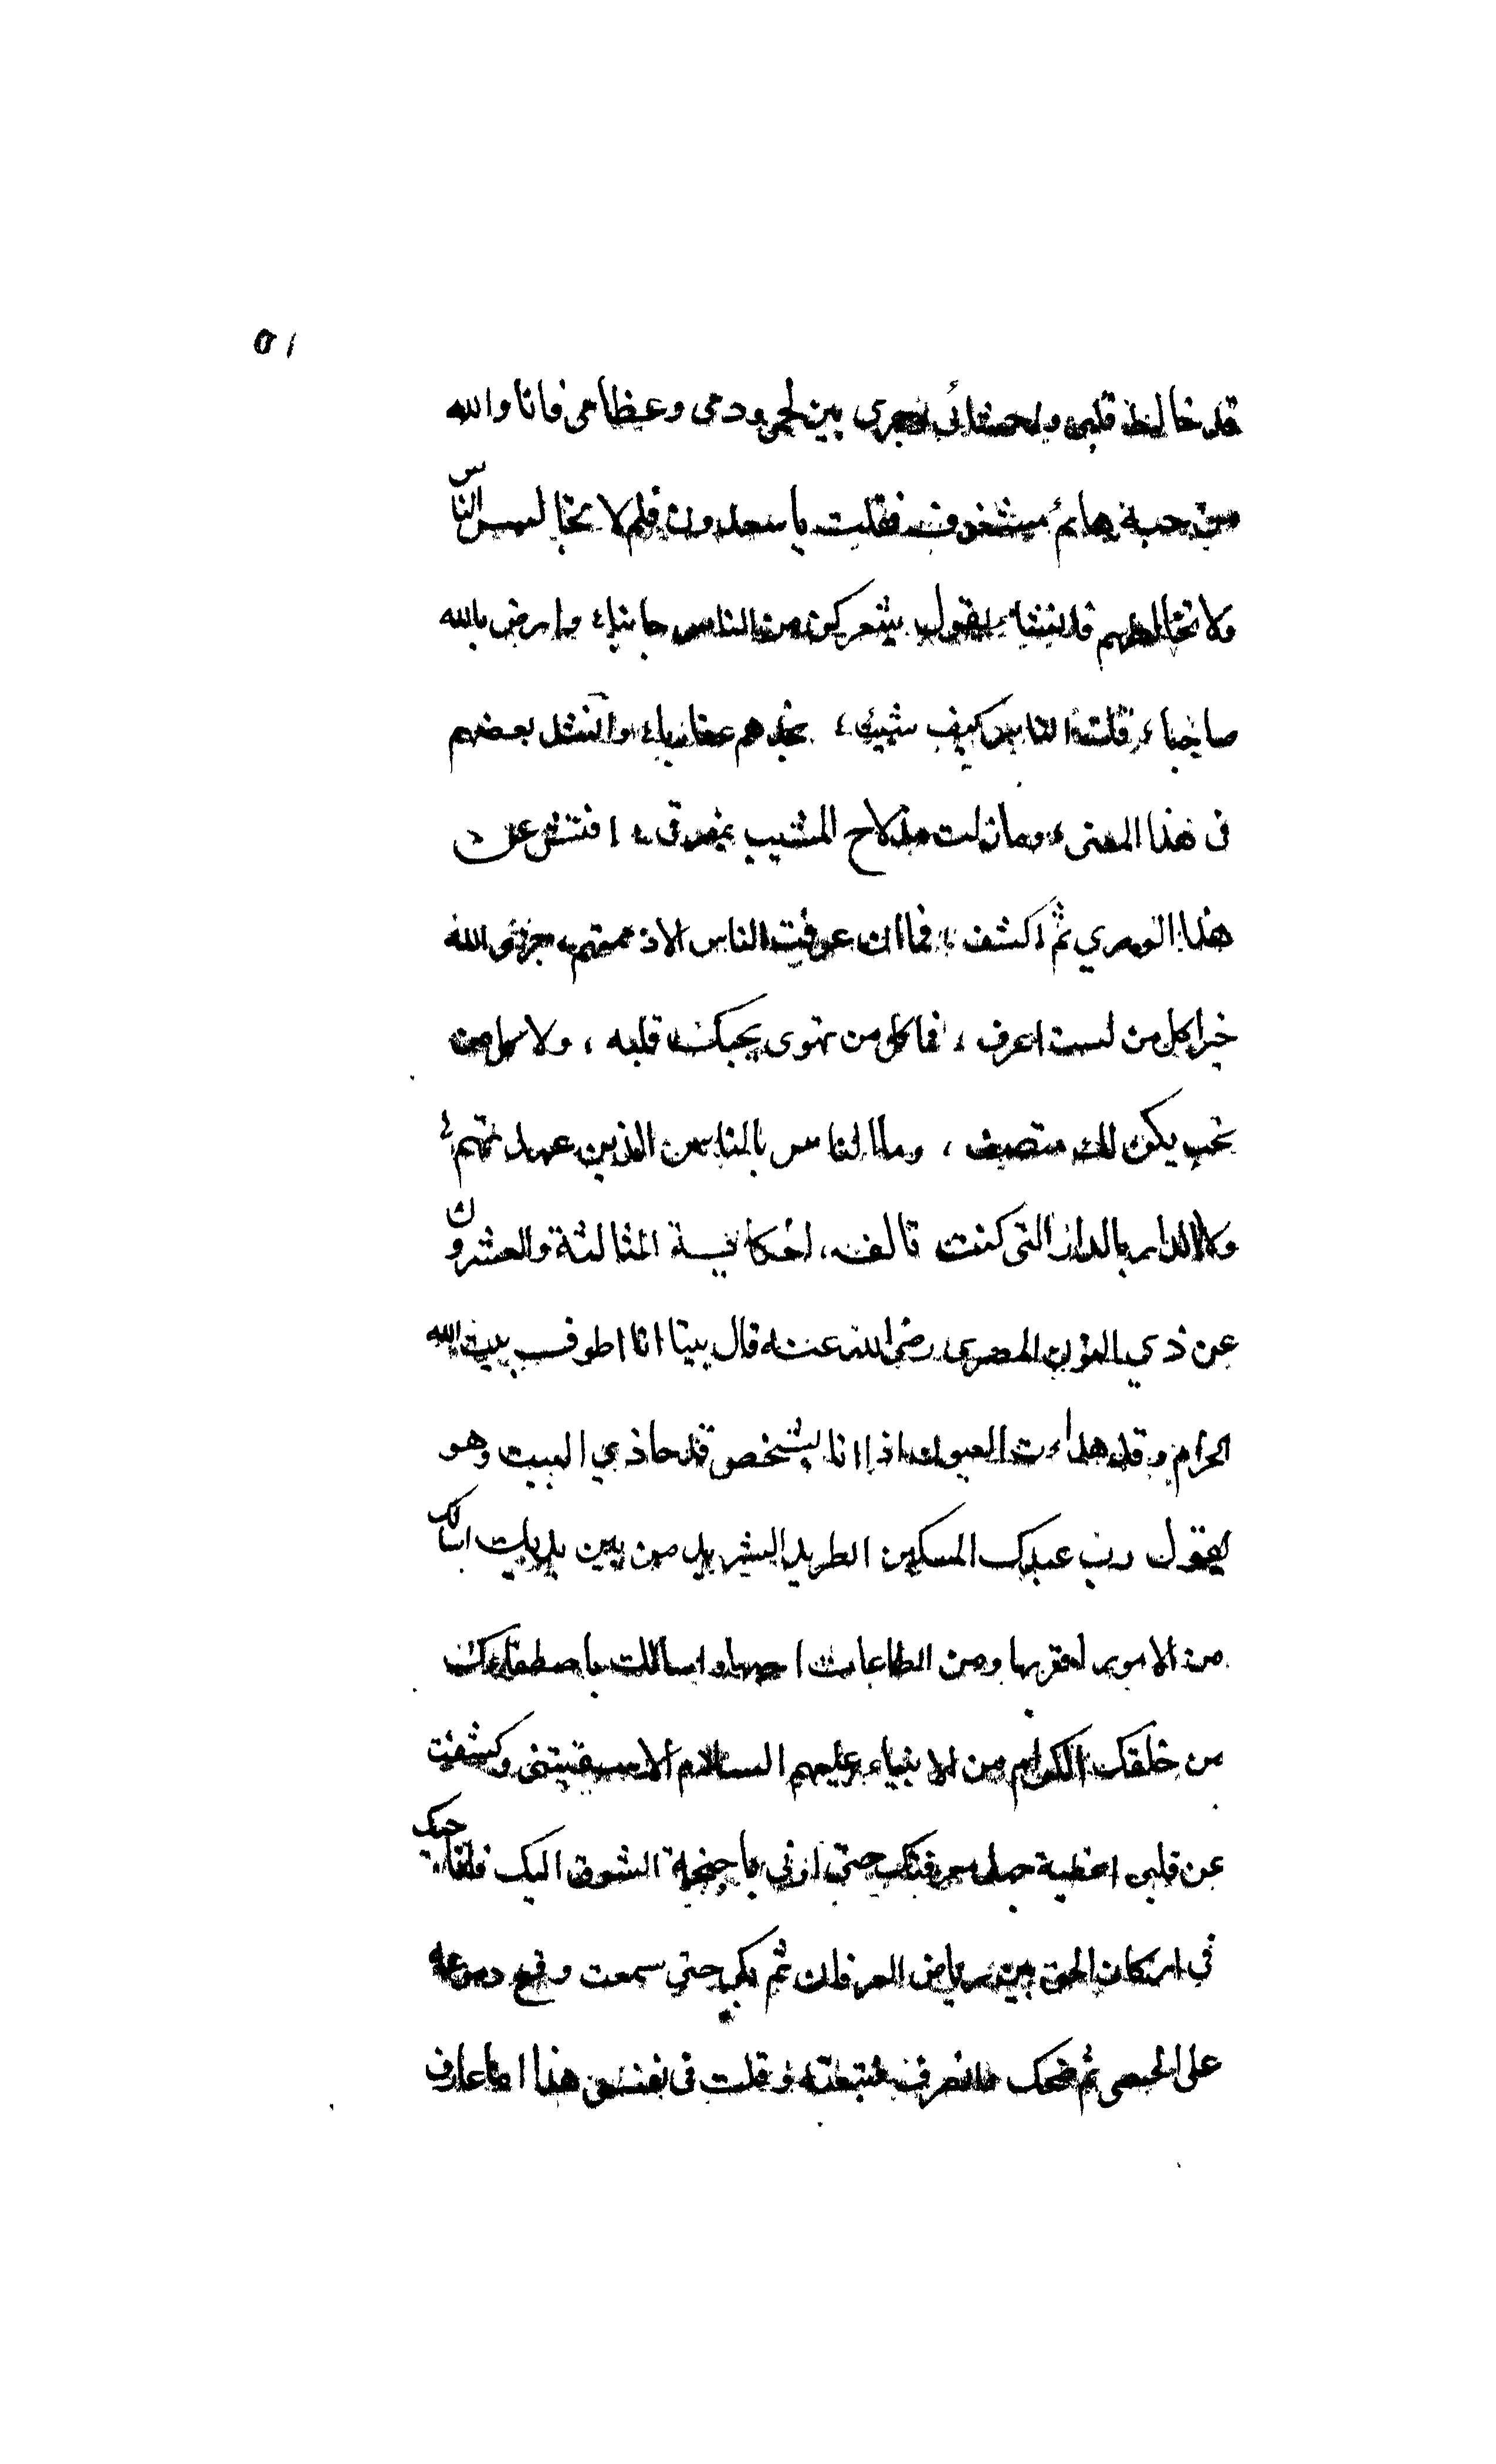 ٥١
قد خالط قلبى واحشائى وجرى بين لحمى ودمى وعظامى فانا والله
من حبه هائم مشغوف فقلت يا سعدون فلم لا تجالس الناس
ولا تخالطهم فانشا يقول شعر كن من الناس جانبا، وارض بالله
صاحبا، قلب الناس كيف شئت، تجدهم عقاربا، وانشد بعضهم
فى هذا المعنى، وما زلت مذ لاح المشيب بمفرقى، افتش عن
هذا الورى ثم اكشف، فما ان عرفت الناس الا ذممتهم، جزى الله
خيرا كل من لست اعرف، فما كل من تهوى يحبك قلبه، ولا كل من
تحب يكون لك منصف، وما الناس بالناس الذين عهدتهم،
ولا الدار بالدار التى كنت تالف، الحكاية الثالثة والعشرون
عن ذي النون المصرى رضى الله عنه قال بينا انا اطوف ببيت الله
الحرام وقد هدات العيون اذا انا بشخص قد حاذي البيت وهو
يقول رب عبدك المسكين الطريد الشريد من بين يديك اسالك
من الامور اقربها ومن الطاعات احبها واسالك باصطفائك
من خلقك الكرام من الانبياء عليهم السلام الا سقيتنى وكشفت
عن قلبى اغطية جهل معرفتك حتى ارقى باجنحة الشوق اليك فاناجيك
في اركان الحق بين رياض العرفان ثم بكى حتى سمعت وقع دموعه
على الحصى ثم ضحك وانصرف فتبعته وقلت فى نفسى هذا اما عارف